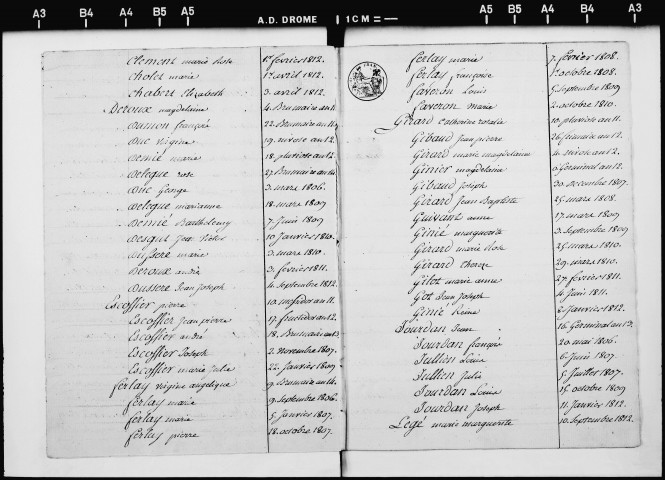 A3 B4 A4 B5 A5 A.D. DROME 1CM A5 B5 A4 B4 A3
Clement marie Rose 1er fevrier 1812.
Cholet marie 1er avril 1812.
Chabert Elizabeth 3 avril 1812.
Deroux magdelaine 4 Brumaire an 11
Damon françois 22 Brumaire an 11
Duc Virgine 19 nivose an 12.
Demié marie 18 pluviose an 12.
Delegue rose 27 Brumaire an 14
Duc George 3 mars 1806.
Delegue marianne 18 mars 1809
Demié Barthelemy 7 Juin 1809
Jean 10 Janvier 1810.
marie 3 mars 1810.
Deroux andré 3 fevrier 1811.
Jean Joseph 4 septembre 1812.
Escoffier pierre 10 messidor an 11.
Escoffier Jean pierre 17 fructidor an 12.
Escoffier andré 18 Brumaire an 13
Escoffier Joseph 2 Novembre 1807.
Escoffier marie Julie 22 Janvier 1809
ferlay virgine angelique 9 Brumaire an 14.
ferlay marie 9 septembre 1806.
ferlay marie 5 Janvier 1807.
ferlay pierre 18 octobre 1807.
ferlay marie 7 fevrier 1808.
ferlay françoise 1er octobre 1808.
faveron Louis 5 septembre 1809
faveron marie 2 octobre 1810.
Gérard Catherine rosalie 10 pluviose an 11.
Gibaud Jean pierre 26 frimaire an 12.
Gérard marie magdelaine 4 nivose an 12.
Génier magdelaine Germinal an 12.
Gibaud Joseph 30 decembre 1807.
Gérard Jean Baptiste 25 mars 1808.
Guivant anne 17 mars 1809
Génié marguerite 3 septembre 1809
Gérard marie Rose 25 mars 1810.
Gérard therese 29 mars 1810.
Gilot marie anne 27 fevrier 1811.
Got Jean Joseph 4 Juin 1811.
Génié Reine 2 Janvier 1812.
Jourdan Jean 16 Germinal an 13.
Jourdan françois 20 mai 1806.
Jullien Louise 6 Juin 1807.
Jullien Julie 5 Juillet 1807.
Jourdan Louise 15 octobre 1809
Jourdan Joseph 11 Janvier 1812.
Legé marie marguerite 10 septembre 1812.